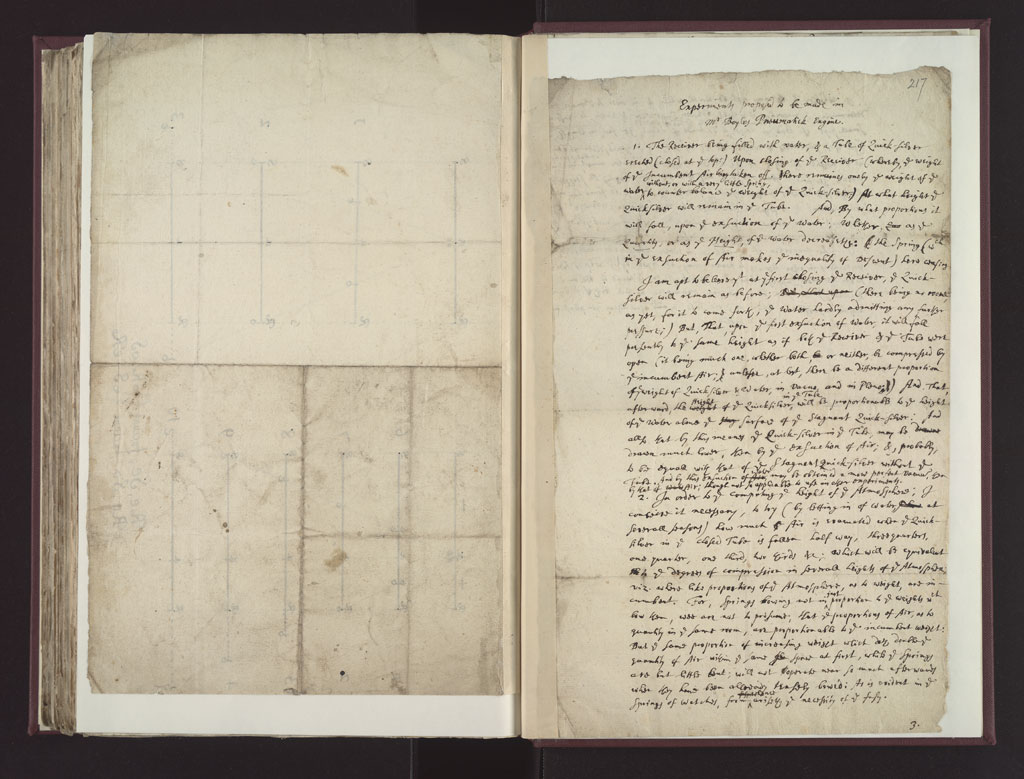 217
Experiments propos'd to be made in
Mr Boyles Pneumatick Engine.
1. The Receiver being filled with water, & a Tube of Quick-silver
erected (closed at ye top:) Upon closing of ye Receiver (whereby ye weight
of ye Incumbent Air being taken off, there remaines onely ye weight of ye
without, or with a very little Spring,
water to counter balance ye weight of ye Quick-silver) At what height ye
Quicksilver will remain in ye Tube. And, By what proportions it
will fall, upon ye exsuction of ye water; Whether, as ye
Quantity, or as ye Height, of ye water decreaseth: (the Spring (wch
in ye exsuction of Air makes ye inequality of Descent) here ceasing
I am apt to beleeve yt at ye first closing ye Receiver, ye Quick-
silver will remain as before; (there being no room,
as yet, for it to come forth, ye water hardly admitting any further
pressure;) But, That, upon ye first exsuction of water it will fall
presently to ye same height as if both ye Receiver & ye Tube were
open (it being much one, whether both, or neither, be compressed by
ye incumbent Air; unlesse, at lest, there be a different proportion
of ye weight of Quicksilver & water, in Vacuo, and in Pleno;) And That
in ye Tube,
afterward, the height of ye Quicksilver, will be proportionable to ye height
of ye water above ye surface of ye Stagnant Quick-silver: And
allso that by this means ye Quick-silver in ye Tube, may be
drawn much lower, then by ye exsuction of Air; &, probably,
to be equall with that of ye Stagnant Quick-silver without ye
Tube. And by this exsuction of may be obtained a more perfect Vacuum, then
by that of Air; though not so applicable to use in other experiments.
2. In order to ye computing ye height of ye Atmosphere; I
conceive it necessary, to try (by letting in of water at
severall seasons) how much Air is evacuated when ye Quick-
silver in ye closed Tube is fallen half way, three quarters,
one quarter, one third, two thirds &c: which will be equivalent
to ye degrees of compression in severall heights of ye Atmosphere
viz. where like proportions of ye Atmosphere, as to weight, are in-
cumbent. For, Springs bowing not in just proportion to ye weights yt
bow them, wee are not to presume, that ye proportions of Air, as to
quantity in ye same room, are proportionable to ye incumbent weight.
But ye same proportion of increasing weight which doth double ye
quantity of Air within ye same space at first, while ye Springs
are but little bent; will not operate near so much afterwards
when they have been allready bowed: As is evident in ye
Springs of watches, from ariseth ye necessity of ye fusy.
3.